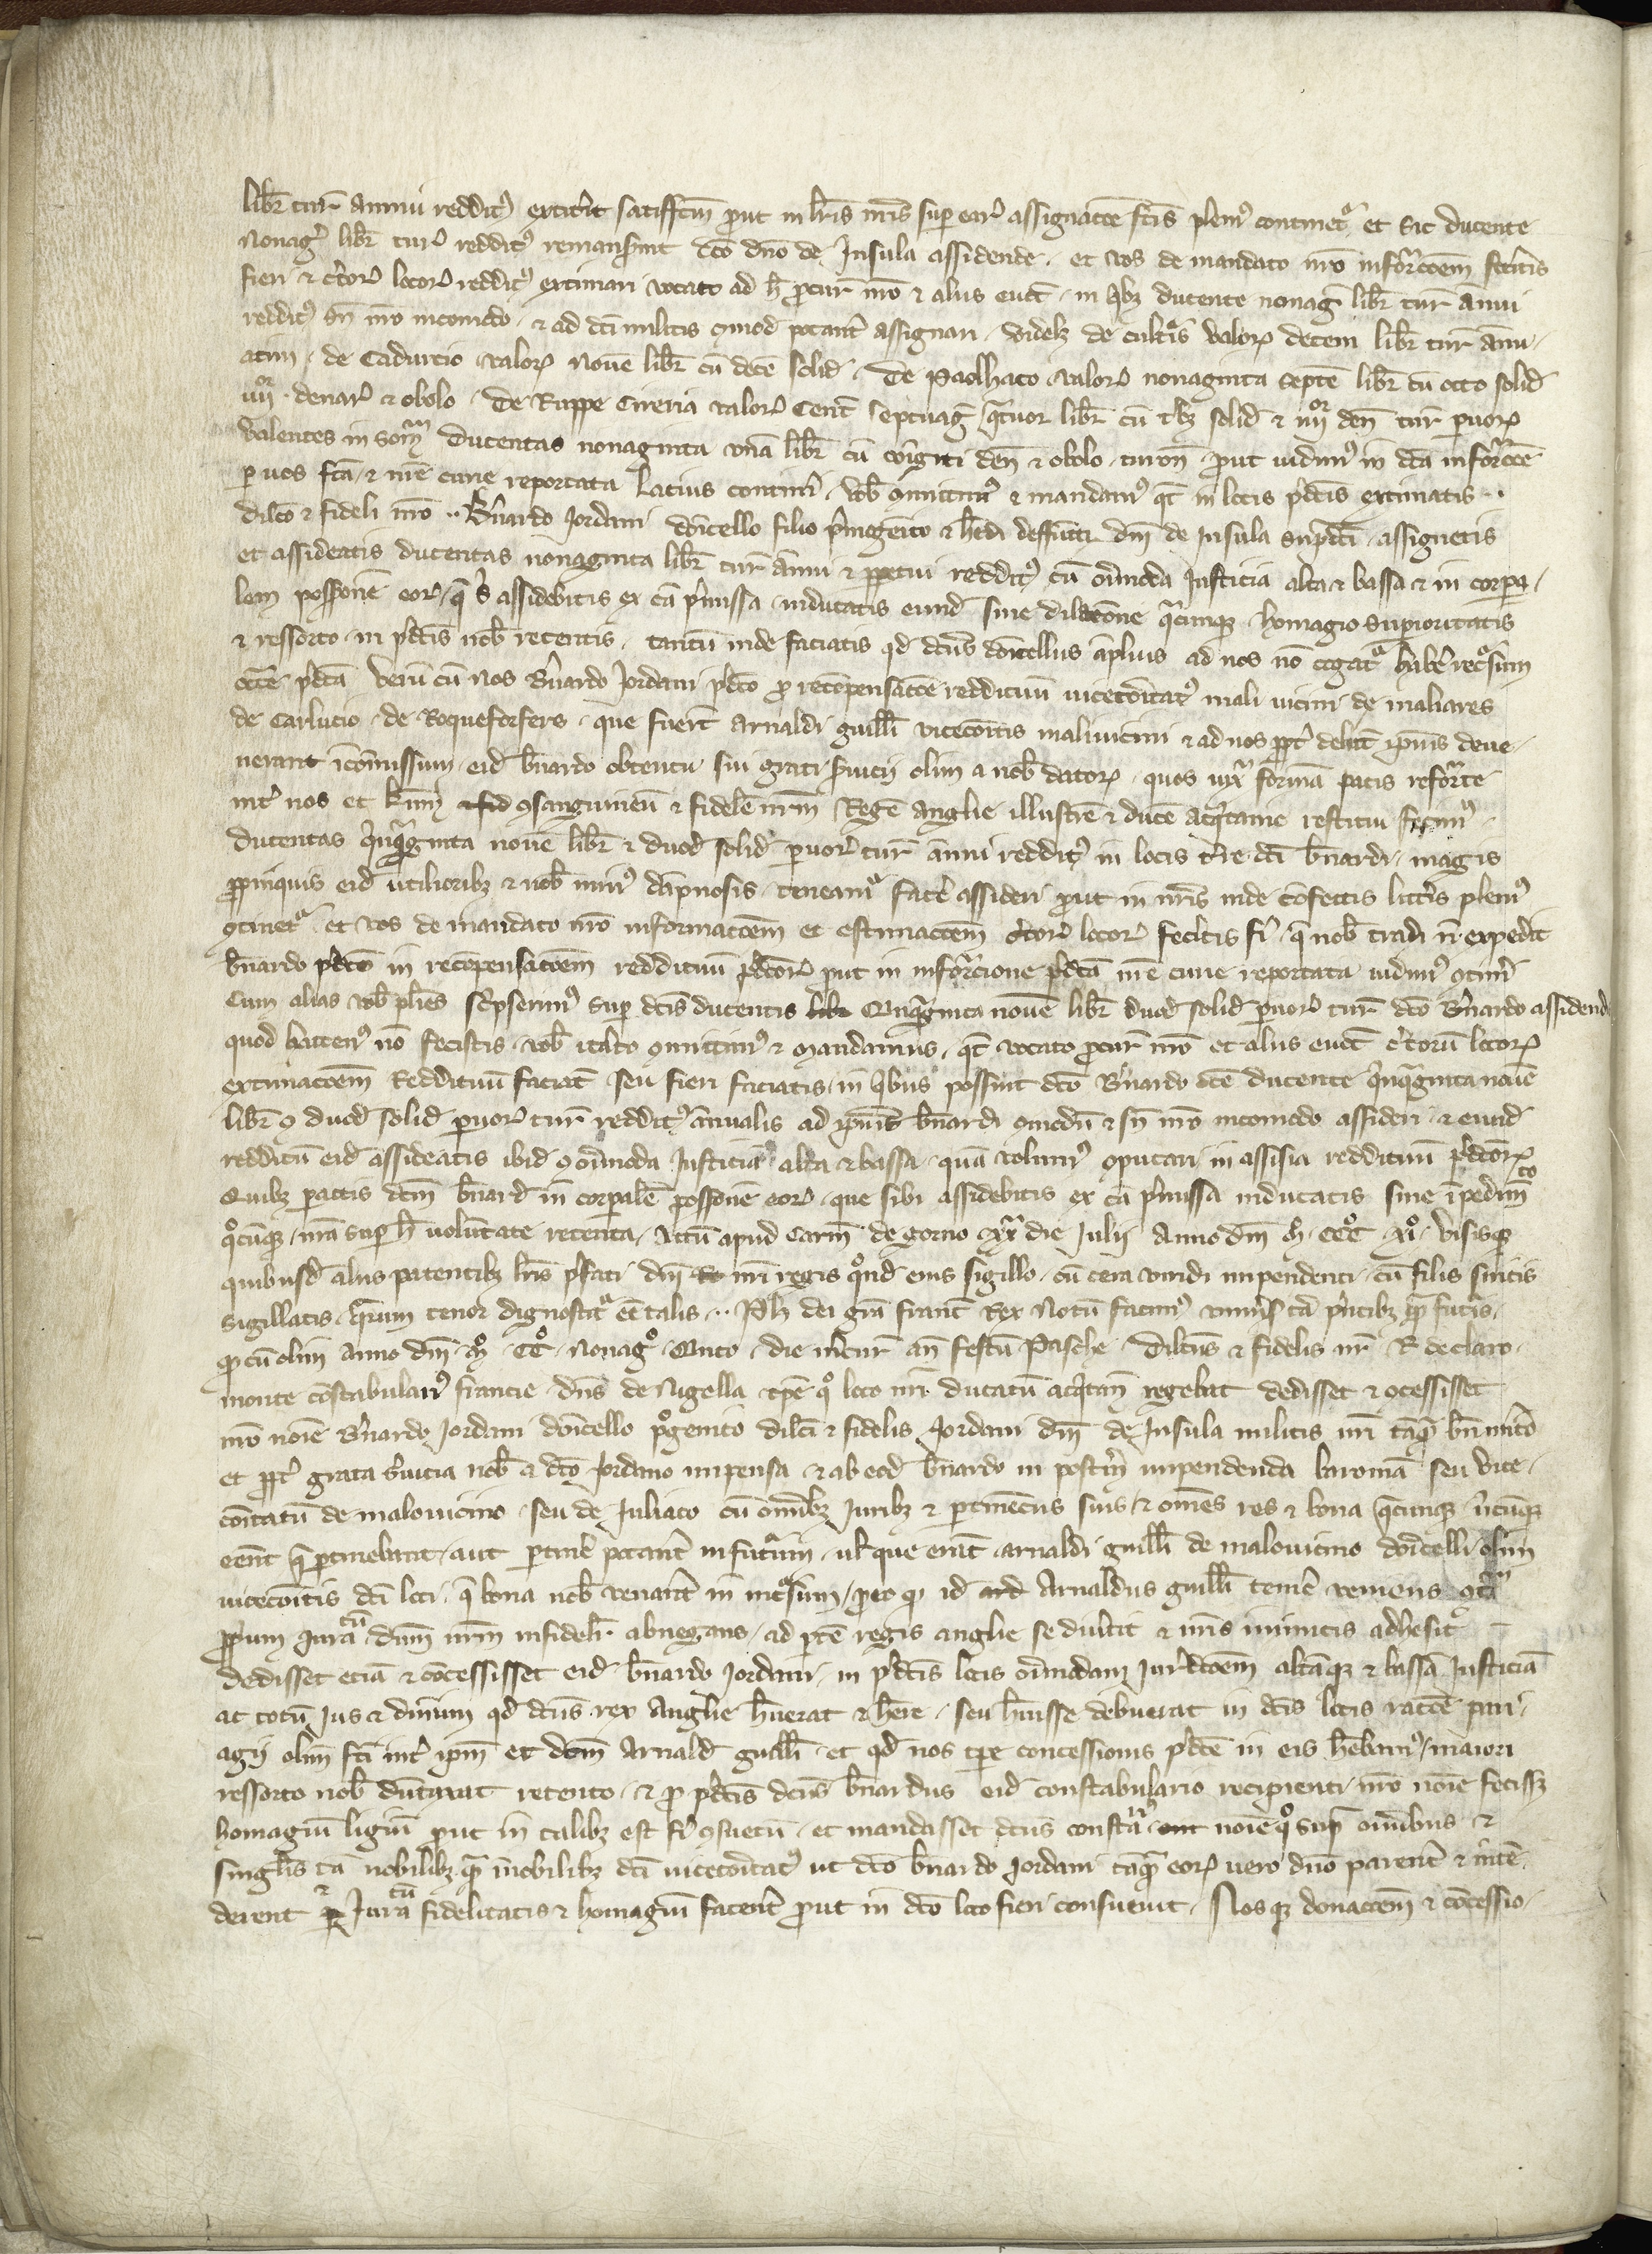 libr̄ tur̄ annui reddit⁹ extit̄it satiffcm̄ put in lr̄is nr̄is sup ear̄ assignac̄oe fc̄is plen⁹ continet᷑ et sic ducente
nonaḡ libr̄ tur̄ reddit⁹ remanser̄unt dc̄o dn̄o de Insula assidende . et vos de mandato nr̄o infor̄coēm fecit̄is
fieri & c̄tor̄ locor̄ reddit⁹ extimari vocato ad h̄ pcur̄ nr̄o & aliis euoc̄ . in qbȝ ducente nonaḡ libr̄ tur̄ annui
reddit⁹ sn̄ nr̄o incomodo . & ad dc̄i militis ꝯmod̄ potant̄ assignari . videlȝ de cultris valor̄ decem libr̄ tur̄ annu
atim . de Cadurcio valor̄ nouē libr̄ cū decē solid̄ . de Paolhaco valor̄ nonaginta septē libr̄ cū octo solid̄
iiijor denar̄ & obolo . de Ruppe Cireria valor̄ Cent̄ septuaḡ quor libr̄ cū tbȝ solid̄ & iiijor den̄ tur̄ puor̄
valentes in som̄ ducentas nonaginta vnā libr̄ cū viginti den̄ & obolo . turon̄ . put vidim⁹ in dc̄a infor̄coē
p vos fc̄a . & in c̄ie reportata latius contineri . vob̄ ꝯmittim⁹ & mandam⁹ qt̄ in locis p̄dc̄is extimatis ..
dilc̄o & fideli nr̄o .. Bn̄ardo Jordani doīcello filio p̄mogēito & h̄edi deffūcti dn̄i de Insula sup̄dc̄i . assignetis
et assideatis ducentas nonaginta libr̄ tur̄ annui & ppetui reddit⁹ cū om̄ioda Iusticia alta & bassa & in corpa
lem possonē eor̄ q̄ s̄ assidebitis ex cā p̄missa . inducatis eund̄ sine dilat̄one qcunqȝ . homagio supioritatis
& ressorto in p̄dc̄is nob̄ retentis . tantū inde faciatis qd̄ dcūs doīcellus āplius ad nos nō cogat᷑ habēre recsum
occ̄e p̄dc̄a . Verū cū nos Bn̄ardo Jordani p̄dc̄o p recōpensac̄oe reddituū vicecōitat⁹ mali vicini de maliares
de Carlucio . de Roqueforfers . que fuer̄t Arnaldi guilli vicecōitis malivicini & ad nos ppt̄ delict̄ ipīus deue
nerant īcōmissum . eid̄ bn̄ardo obtentu sui grati suicij olim a nob̄ dator̄ . quos iux̄ formā pacis refor̄te
int̄ nos et kn̄m ꝯsanguineū & fidelē nr̄m Regē Anglie illustrē & ducē acq̄tanie restitui fecim⁹ .
ducentas q̄nq̄ginta nouē libr̄ & duod̄ solid̄ puor̄ tur̄ annui reddit⁹ in locis t̄re dc̄i bn̄ardi . magis
ppinquis eid̄ vtilioribȝ & nob̄ min⁹ dāpnosis . teneam᷑ fac̄e assideri . put in nr̄is inde cōfectis litt̄is plen⁹
ꝯtinet᷑ et vos de mandato nr̄o informac̄oem et estimac̄oem c̄tor̄ locor̄ fecistis fi . q̄ nob̄ tradi n̄ expedit
bn̄ardo p̄dc̄o in recōpensac̄oem reddituū p̄dc̄or̄ put in infor̄cione p̄dc̄a in c̄ie reportata vidim⁹ ꝯtineri
Cum alias vob̄ plīes sc̄psserim⁹ sup dc̄is ducentis libr̄ Q̄nq̄ginta nouē libr̄ duod̄ solid̄ puor̄ tur̄ dc̄o Bn̄ardo assidend̄
quod hacten⁹ nō fecistis . vob̄ itato ꝯmittim⁹ & mandamus . qt̄ vocato pcur̄ nr̄o et aliis euoc̄ c̄torū locor̄
extimac̄oem Reddituū faciat̄ seu fieri faciatis . in qbus possint dc̄o Bn̄ardo dc̄e ducente q̄nq̄ginta nouē
libr̄ ꝯ duod̄ solid̄ puor̄ tur̄ reddit⁹ annualis ad ipīus bn̄ardi ꝯmodū & sn̄ nr̄o incomodo assideri . & eund̄
redditū eid̄ assideatis ibid̄ ꝯ om̄ioda Iusticia alta & bassa . quā volum⁹ ꝯputari in assisia reddituū p̄dc̄or̄
Quibȝ pactis dc̄m bn̄ard̄ in corpalē possonē eor̄ . que sibi assidebitis ex cā p̄missa inducatis sine īpedimto
qocunqȝ . nr̄a sup h̄ volūtate retenta . Actū apud Carm̄ de gorno xxa die Julij Anno dn̄i mo CCCo xjo . Visisqȝ
quibusd̄ aliis patentibȝ lr̄is p̄fati dn̄i nr̄i regis quod̄ eius sigillo . cū cera viridi impendenti . cū filis siricis
sigillatis . q̄rum tenor dignoscit᷑ eē talis .. Ph̄ dei gr̄a franc̄ Rex Notū facim⁹ vniuīs tā p̄ntibȝ q̄ futīs .
q̄ cū olim anno dn̄i mo CCo nonago Q̄nto . die m̄cur̄ an̄ festū Pasche . dilcūs & fidelis nr̄ R̄ de claro
monte cōstabulari⁹ francie . dn̄s de Nigella tp̄e qo loco nr̄i ducatū acq̄tan̄ regebat dedisset & ꝯcessisset
nr̄o noīe Bn̄ardo Jordani doīcello p̄ogenito dilc̄i & fidelis Jordani dn̄i de Insula militis nr̄i tāq̄ bn̄ mīto
et ppt̄ grata s̄uicia nob̄ a dc̄o Jordano impensa . & ab eod̄ bn̄ardo in post̄m impendenda baroniā seu vice
cōitatū de malouicino . seu de Juliaco cū om̄ibȝ Iuribȝ & ptinēciis suis & om̄es res & bona q̄cunqȝ vbicūqȝ
eēnt q̄ ptinebant . aut ptinēre potant̄ in futūrum . ul̄ que erant Arnaldi guilli de malouicino doīcelli olim
vicecōitis dc̄i loci . q̄ bona nob̄ venant̄ in incsum . p eo q̄ id̄ Arnaldus guilli temē veniens ꝯt̄
ppum Iuram̄tū dn̄m nr̄m infidelr̄ abnegans . ad ptē regis anglie se diūtit & nr̄is inimicis adhesit
dedisset eciā & cōcessisset eid̄ bn̄ardo Jordani . in p̄dc̄is locis om̄iodam Iur̄dc̄oem altāqȝ & bassā Iusticiā
ac totū Ius & dn̄ium qd̄ dcūs rex Anglie hūerat & hēre . seu hūisse debuerat in dc̄is locis rac̄oe pari
agij olim fc̄i int̄ ipm̄ et dc̄m Arnald̄ guilli . et qd̄ nos tp̄e concessionis p̄dc̄e in eis hēbam⁹ / maiori
ressorto nob̄ dūtaxat retento . & p p̄dc̄is dcūs bn̄ardus eid̄ constabulario recipienti nr̄o noīe fecissȝ
homagiū ligiū put in talibȝ est fi ꝯsuetū . et mandasset dcūs consta noīe qo sup̄ om̄ibus &
singlīs tā nobilibȝ q̄ īnobilibȝ dc̄i vicecōitat⁹ ut dc̄o bn̄ardo Jordani tāq̄ eor̄ vero dn̄o parent̄ & int̄e
derent & Iuram̄tū fidelitatis & homagiū facent̄ put in dc̄o loco fieri consueuit . Nosqȝ donac̄oem & cōcessio